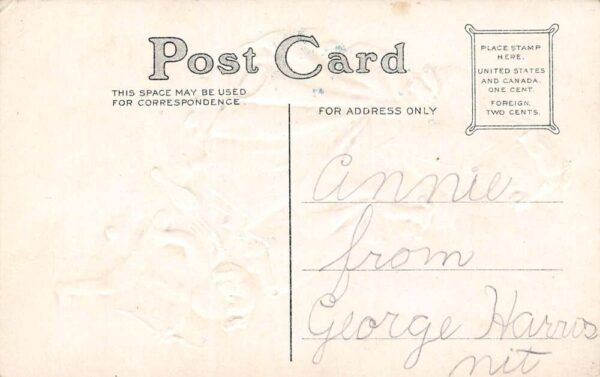 Post Card
THIS SPACE MAY BE USED
FOR CORRESPONDENCE
FOR ADDRESS ONLY
PLACE STAMP
HERE.
UNITED STATES
AND CANADA.
ONE CENT.
FOREIGN,
TWO CENTS.
Annie
from
George Harris
nit